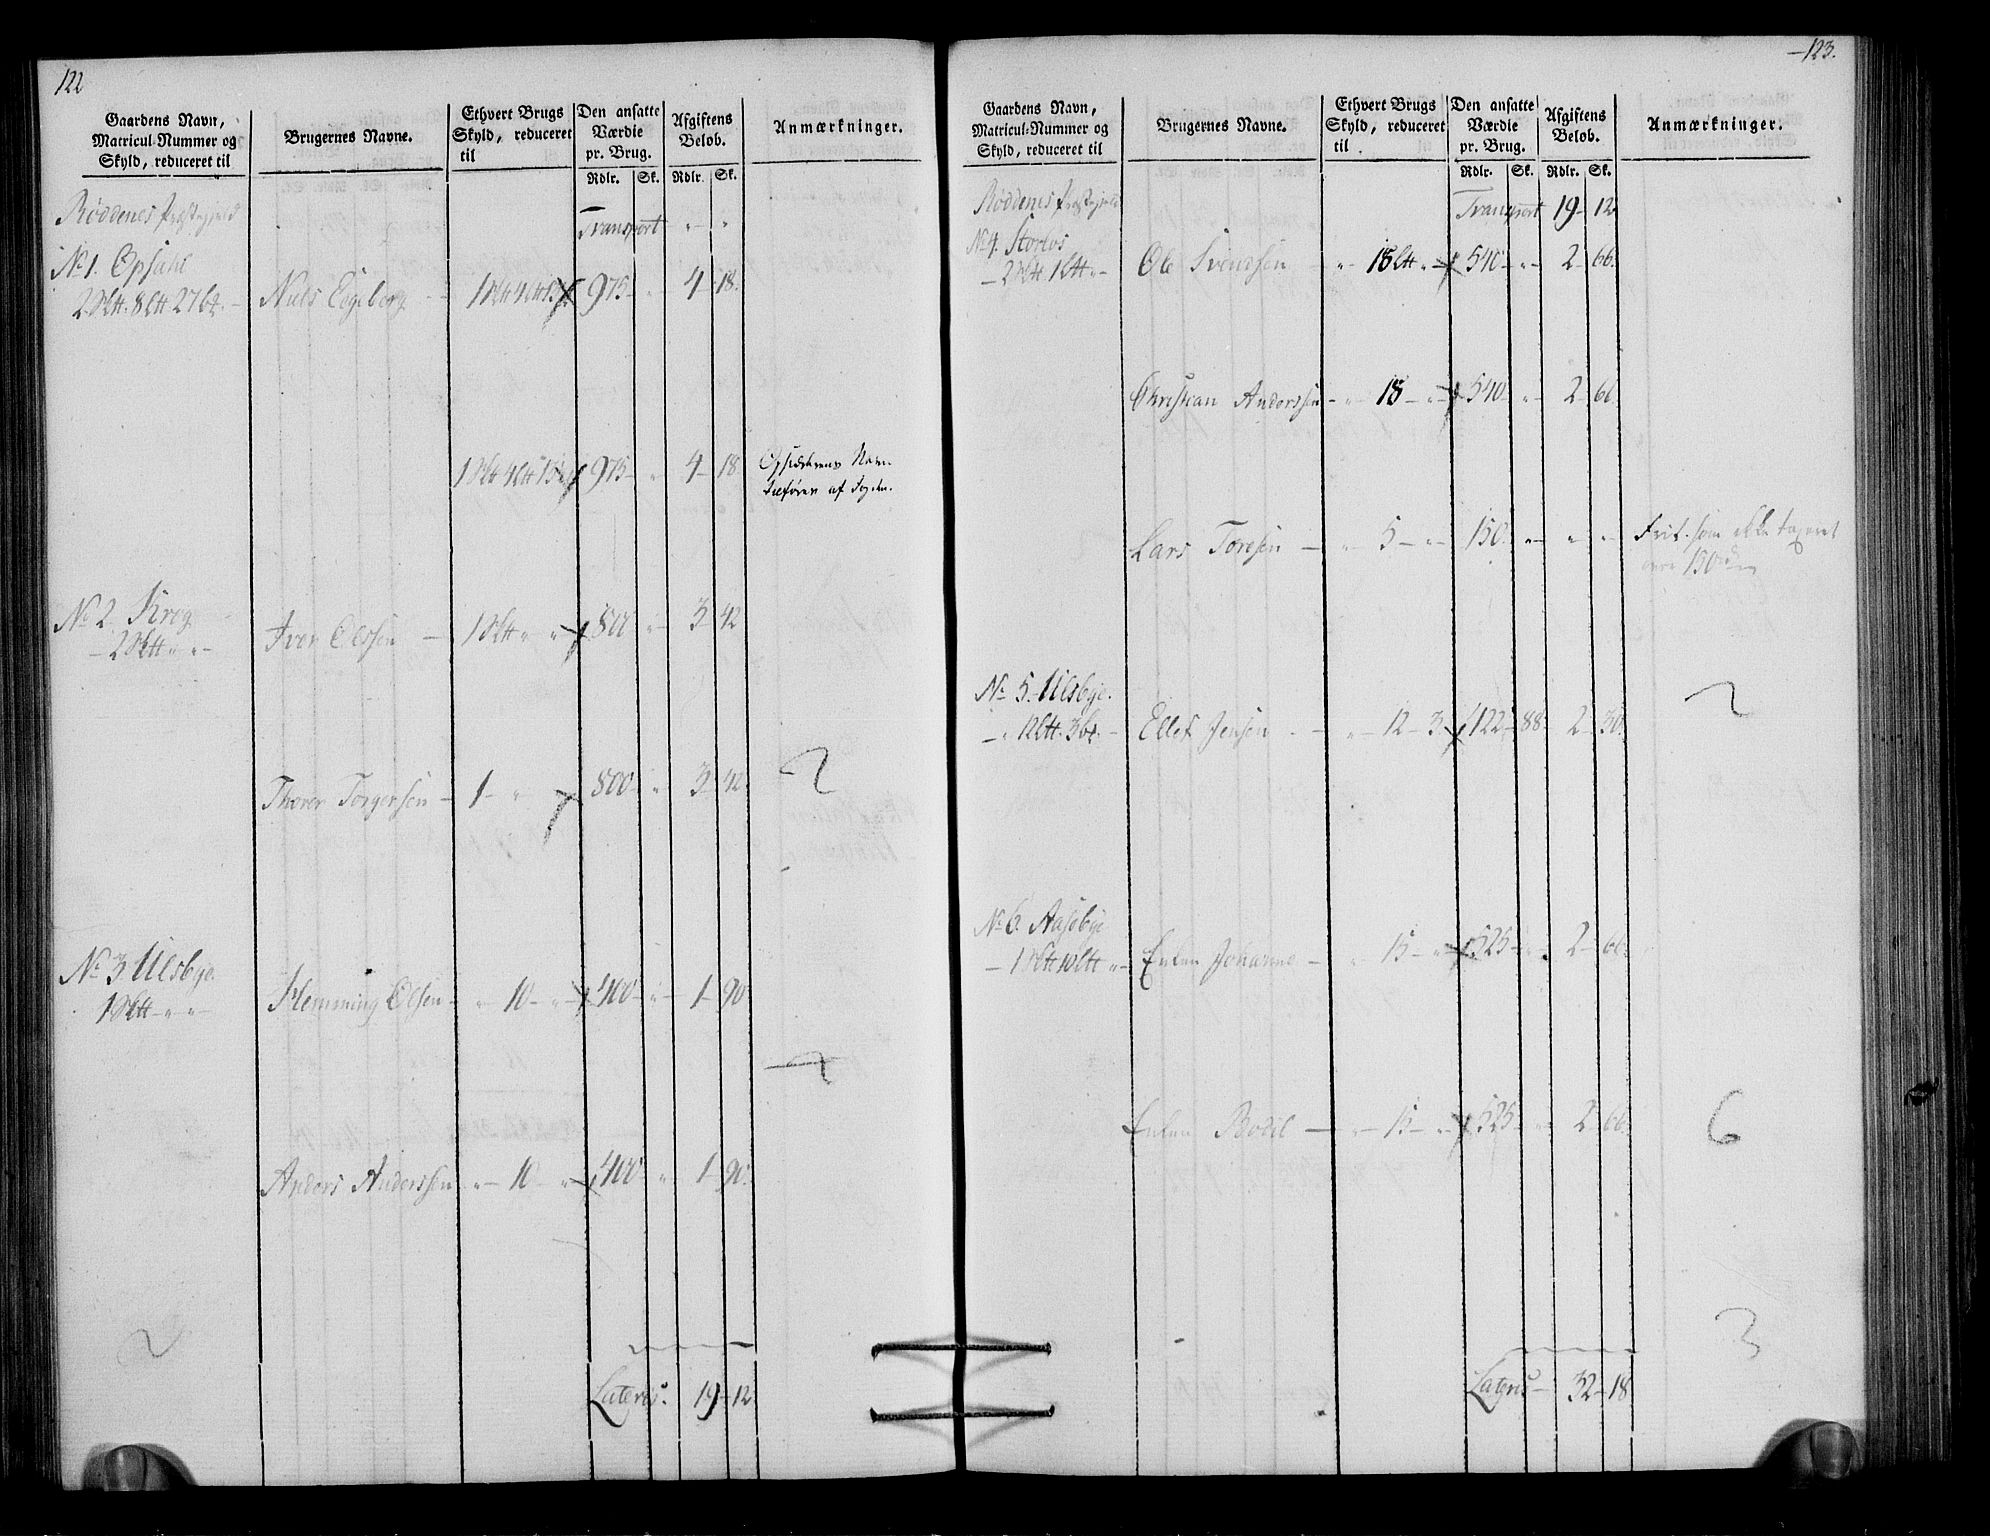 122
Gaardens Navn,
Matricul-Nummer og
Skyld, reduceret til
Brugernes Navne.
Ethvert Brugs
Skyld, reduceret
til
Den ansatte
Værdie
pr. Brug.
Rdlr. Sk.
Afgiftens
Beløb.
Rdlr. Sk.
Anmærkninger.
Røddenes Præstegjeld
Transport " "
No 1. Opsahl
2 Sk℔. 8 L℔ 27 b℔. Niels Egeberg 1 Sk℔ 4 L℔ 13½ 975 " 4 18.
1 Sk℔ 4 L℔ 13½ 975 " 4 18 Opsidderens Navn
tilføres af Fogden.
No 2 Krog
2 Sk℔ " " Iver Olssen 1 Sk℔ " " 800 " 3 42
Thorer Torgersen 1 " 800 " 3 42.
2
No 3 Ulsbye.
1 Sk℔ " " Flemming Olsen " 10 " 400 " 1 90
Anders Anderssen " 10 " 400 " 1 90.
2
Lateris. 19 12
123.
Gaardens Navn,
Matricul-Nummer og
Skyld, reduceret til
Brugernes Navne.
Ethvert Brugs
Skyld, reduceret
til
Den ansatte
Værdie
pr. Brug.
Rdlr. Sk.
Afgiftens
Beløb.
Rdlr. Sk.
Anmærkninger.
Røddenes Præstegjeld
Transport 19 12
No 4. Storlos
2 Sk℔ 1 L℔ " Ole Svenssen " 18 L℔ " 540 " 2 66.
Christian Anderssen " 18 " 540 " 2 66.
Lars Toresen " 5 " 150. " " " Frit. som ikke taxeret
over 150 rd
No 5. Ulsbye.
" 12 L℔. 3 b℔. Ellef Jensen " 12 3 122 88 2 30.
2
No 6. Aasebye
1 Sk℔ 10 L℔ " Enken Johanne " 15 " 525 " 2 66.
Enken Bodil " 15 " 525 " 2 66.
6
3
Lateris 32 18